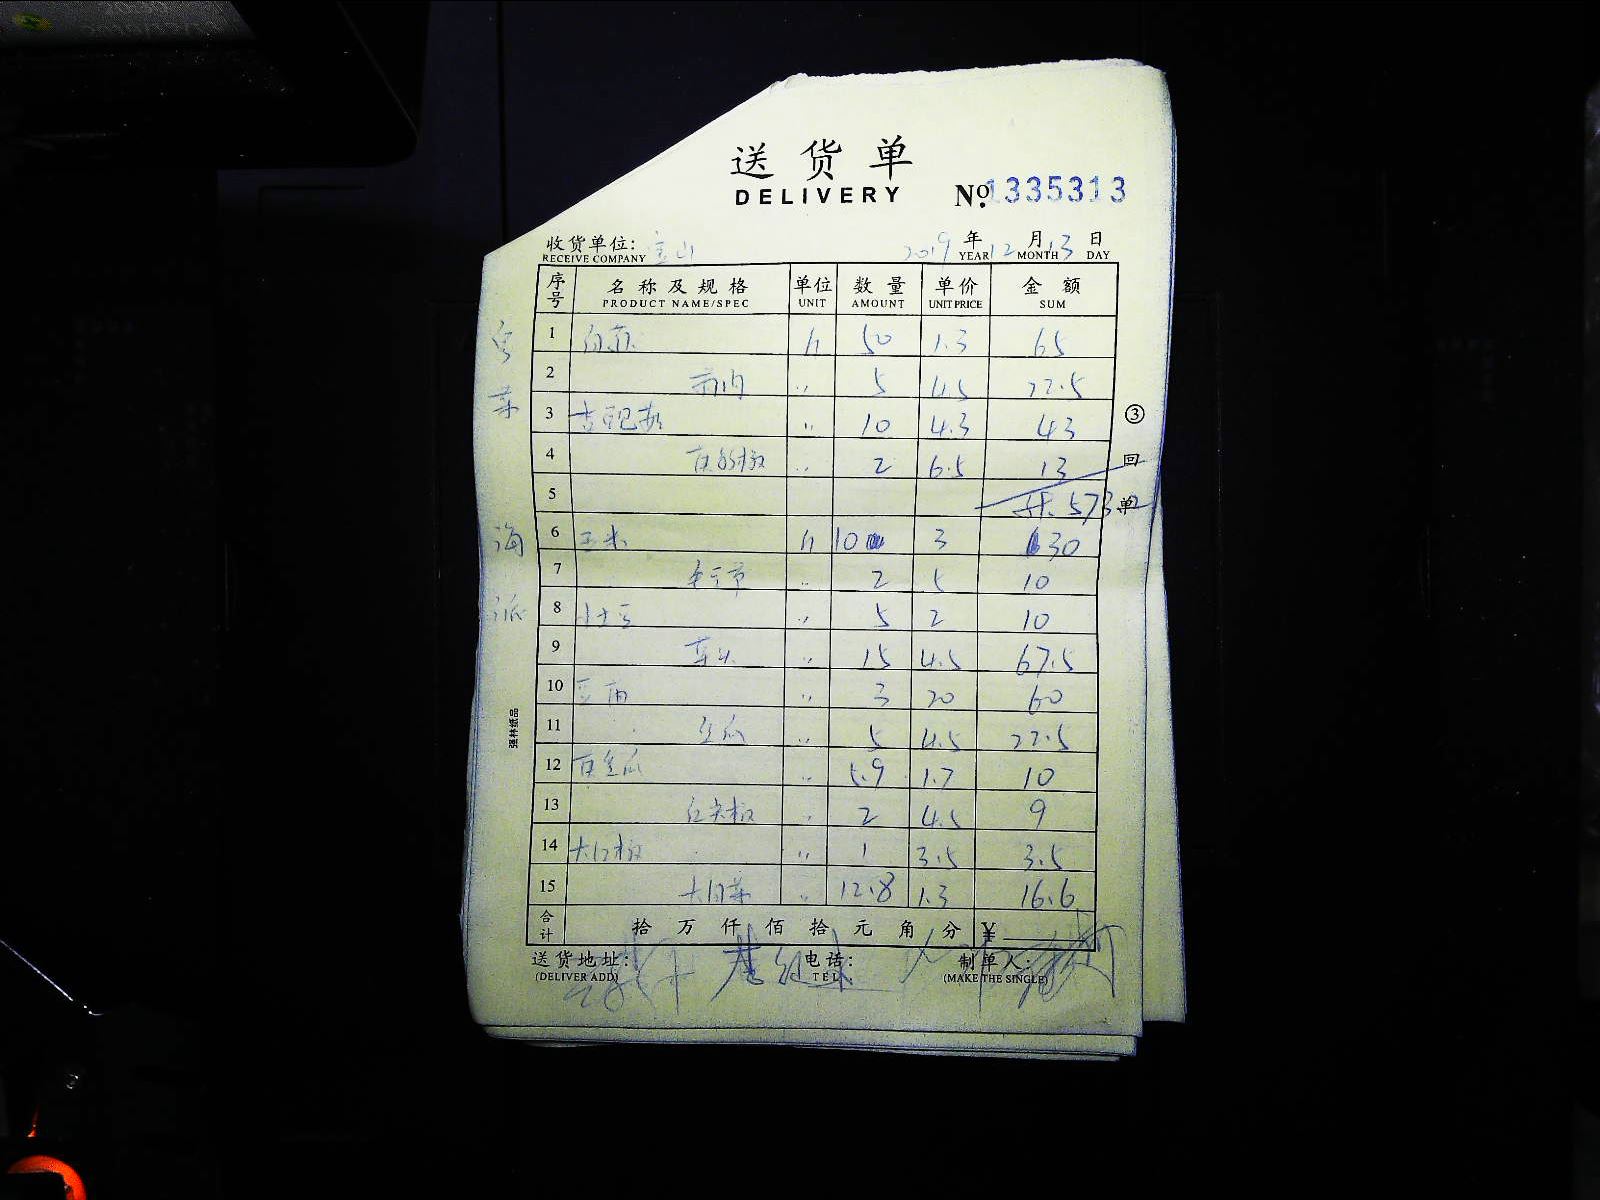 送货单
DELIVERY
No. 1335313
收货单位: 宝山 2019 年 12 月 13 日
RECEIVE COMPANY YEAR MONTH DAY
序号 名称及规格 单位 数量 单价 金额
PRODUCT NAME/SPEC UNIT AMOUNT UNIT PRICE SUM
1 斤 50 1.3 65
2 〃 5 4.5 22.5
3 〃 10 4.3 43
4 〃 2 6.5 13
5 共573
6 玉米 斤 10 3 30
7 〃 2 5 10
8 小土豆 〃 5 2 10
9 〃 15 4.5 67.5
10 豆腐 〃 3 20 60
11 丝瓜 〃 5 4.5 22.5
12 〃 5.9 1.7 10
13 红尖椒 〃 2 4.5 9
14 大红椒 〃 1 3.5 3.5
15 大白菜 〃 12.8 1.3 16.6
合计 拾 万 仟 佰 拾 元 角 分 ¥
送货地址: 电话: 制单人:
(DELIVER ADD) TEL (MAKE THE SINGLE)
③回单
海派
强林纸品